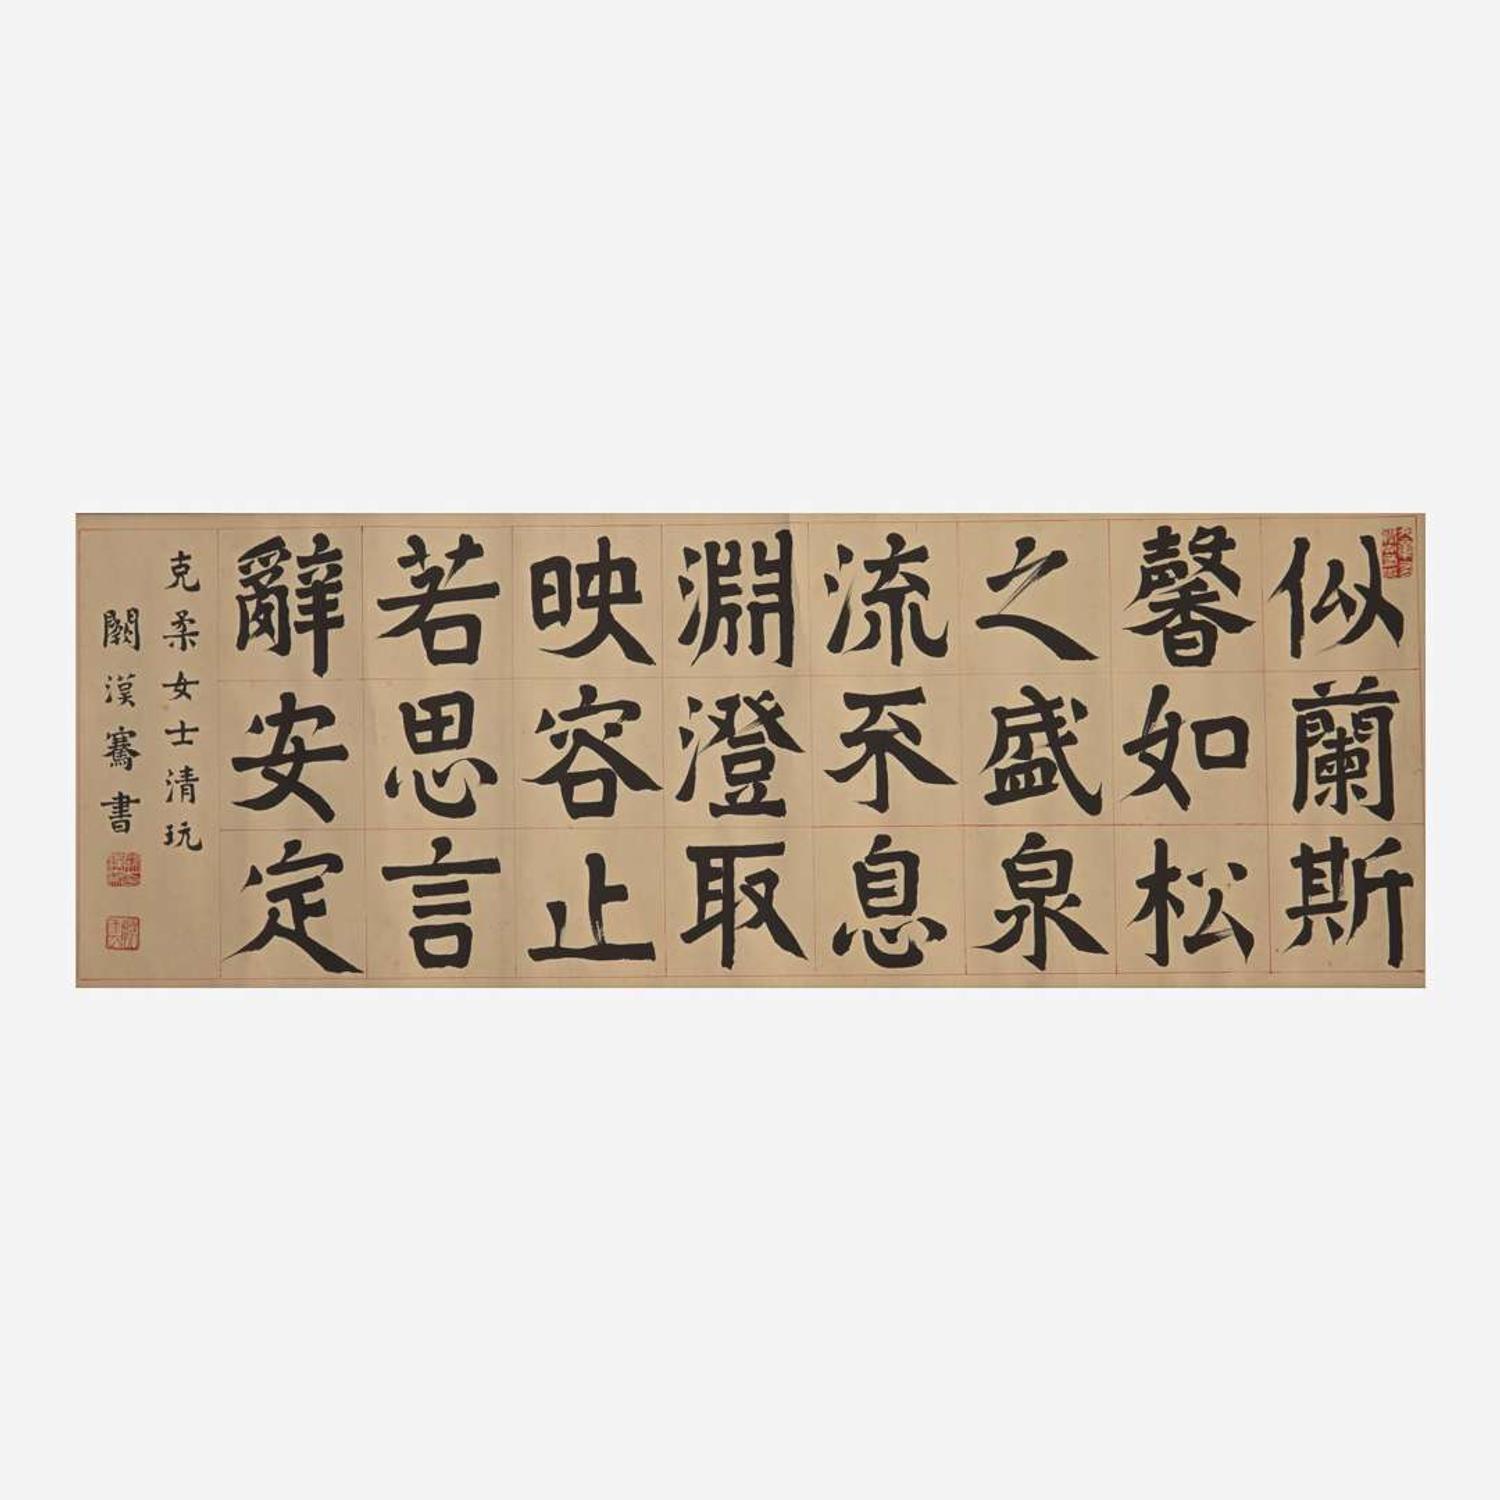 似蘭斯
馨如松
之盛泉
流不息
淵澄取
映容止
若思言
辭安定
克柔女士清玩
闕漢騫書